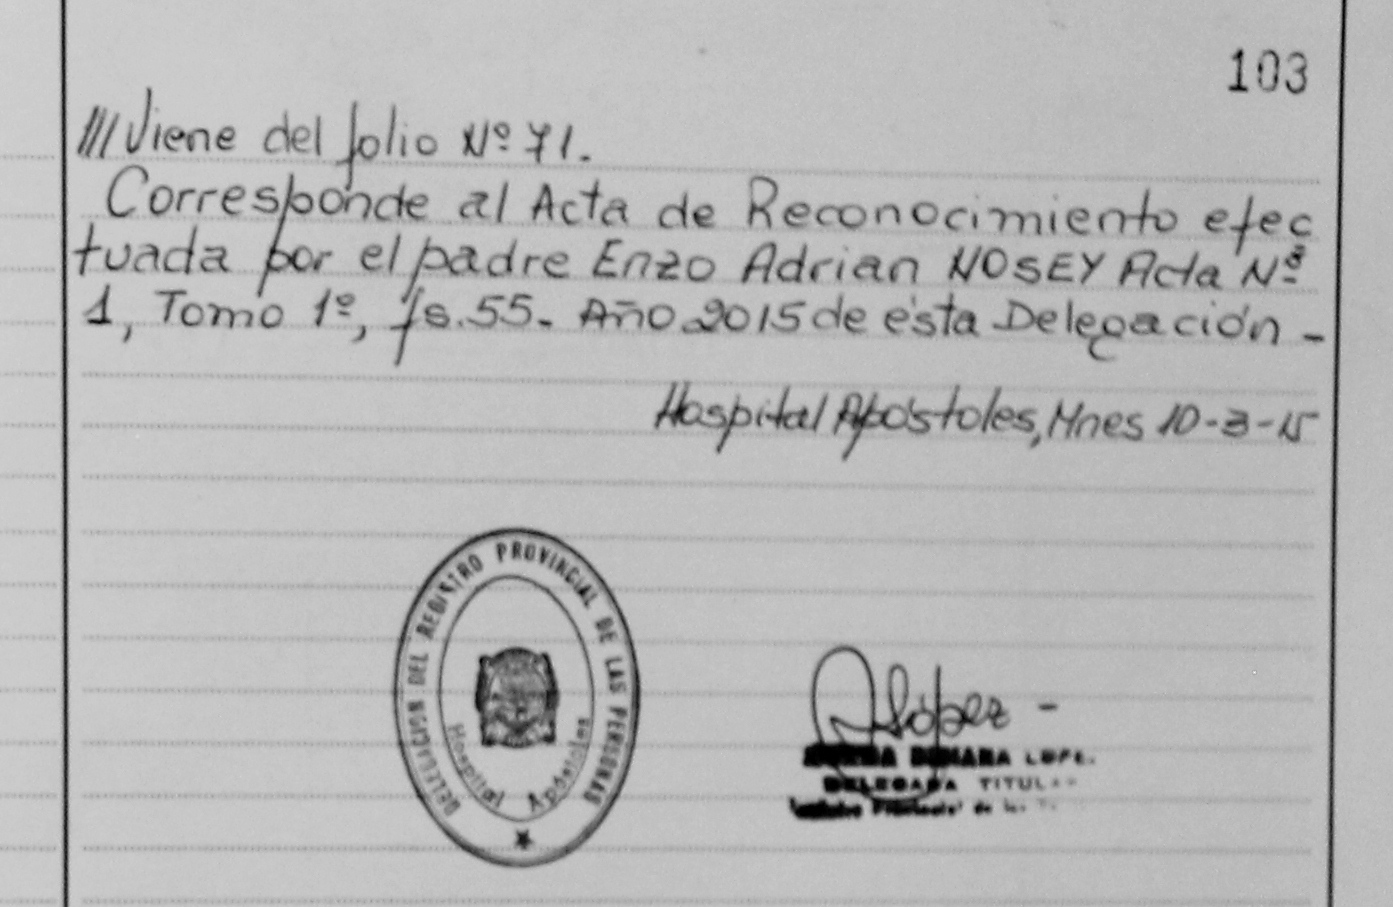 103
/// Viene del folio Nº 71.
Corresponde al Acta de Reconocimiento efec
tuada por el padre Enzo Adrian NOSEY Acta Nº
1, Tomo 1º, fs. 55. Año 2015 de ésta Delegación -
Hospital Apóstoles, Mnes 10-3-15
DELEGACION DEL REGISTRO PROVINCIAL DE LAS PERSONAS
Hospital Apóstoles
López -
LOPE.
DELEGADA TITULAR
de las